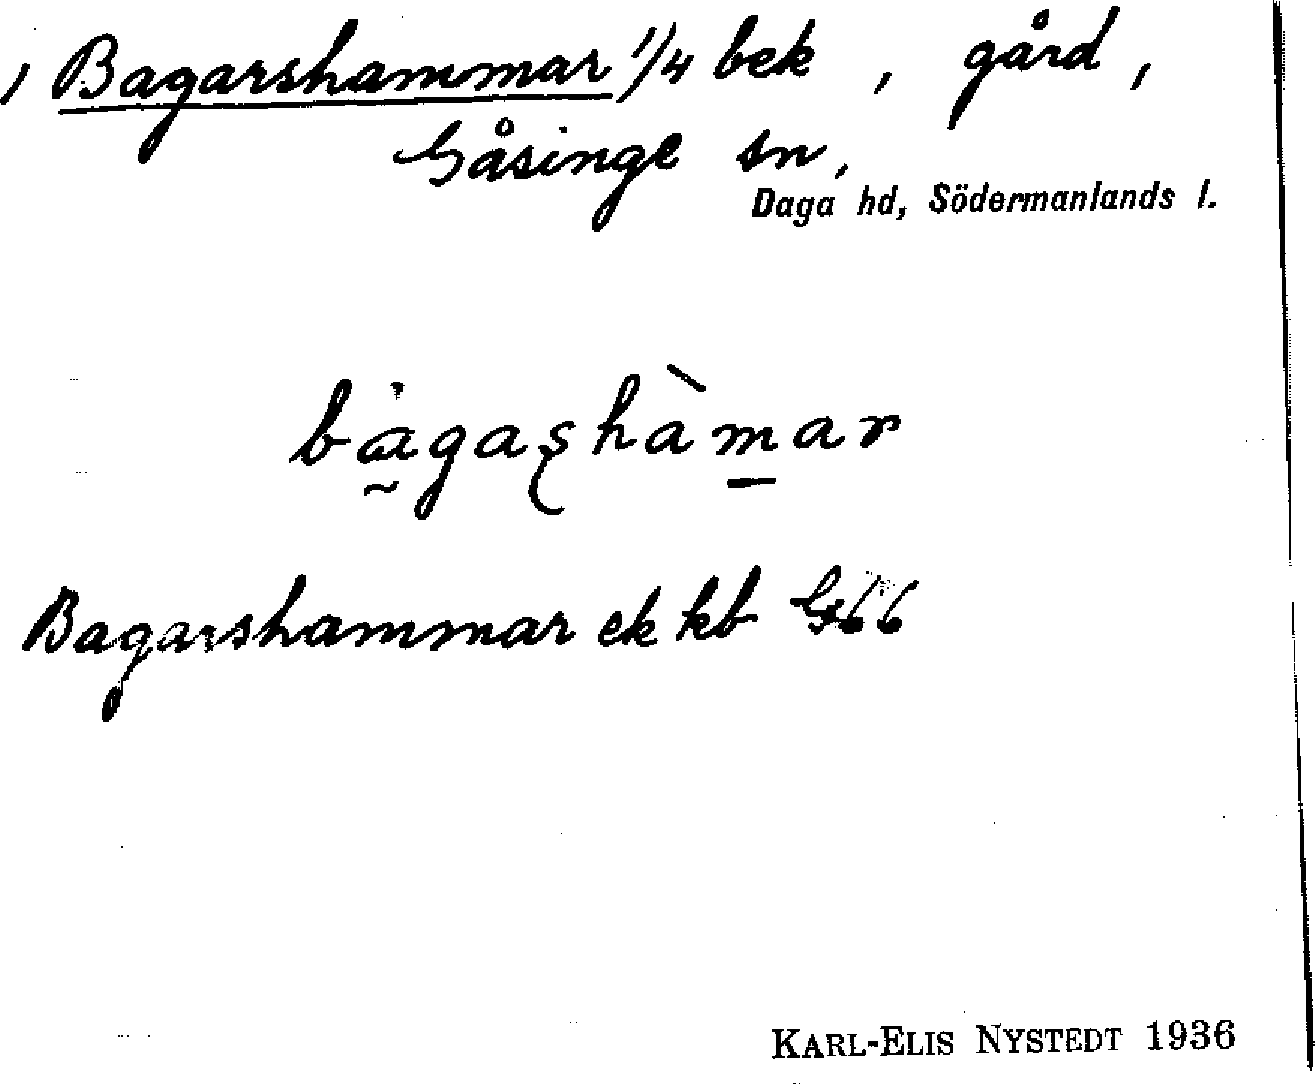 Bagarshammar 1/4 bek, gård,
Gåsinge sn,
Daga hd, Södermanlands l.
bagashàmar
Bagarshammar ek kb G66
KARL-ELIS NYSTEDT 1936